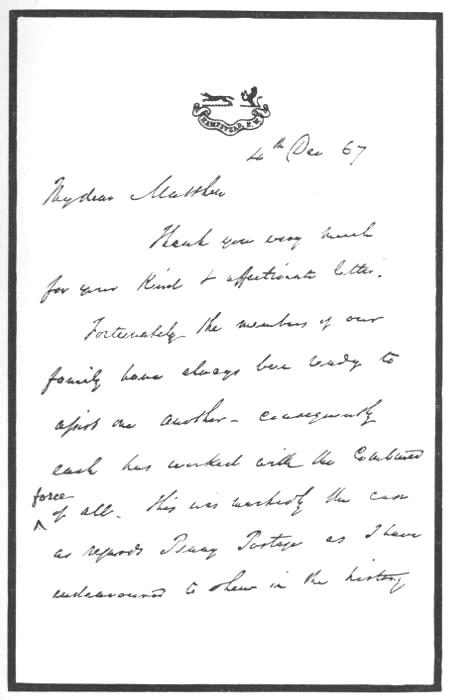 HAMPSTEAD, N.W.
4th Dec 67
My dear Matthew
Thank you very much
for your kind & affectionate letter.
Fortunately the members of our
family have always been ready to
assist one another - consequently
each has worked with the combined
force
of all. This was markedly the case
as regards Penny Postage as I have
endeavoured to shew in the history